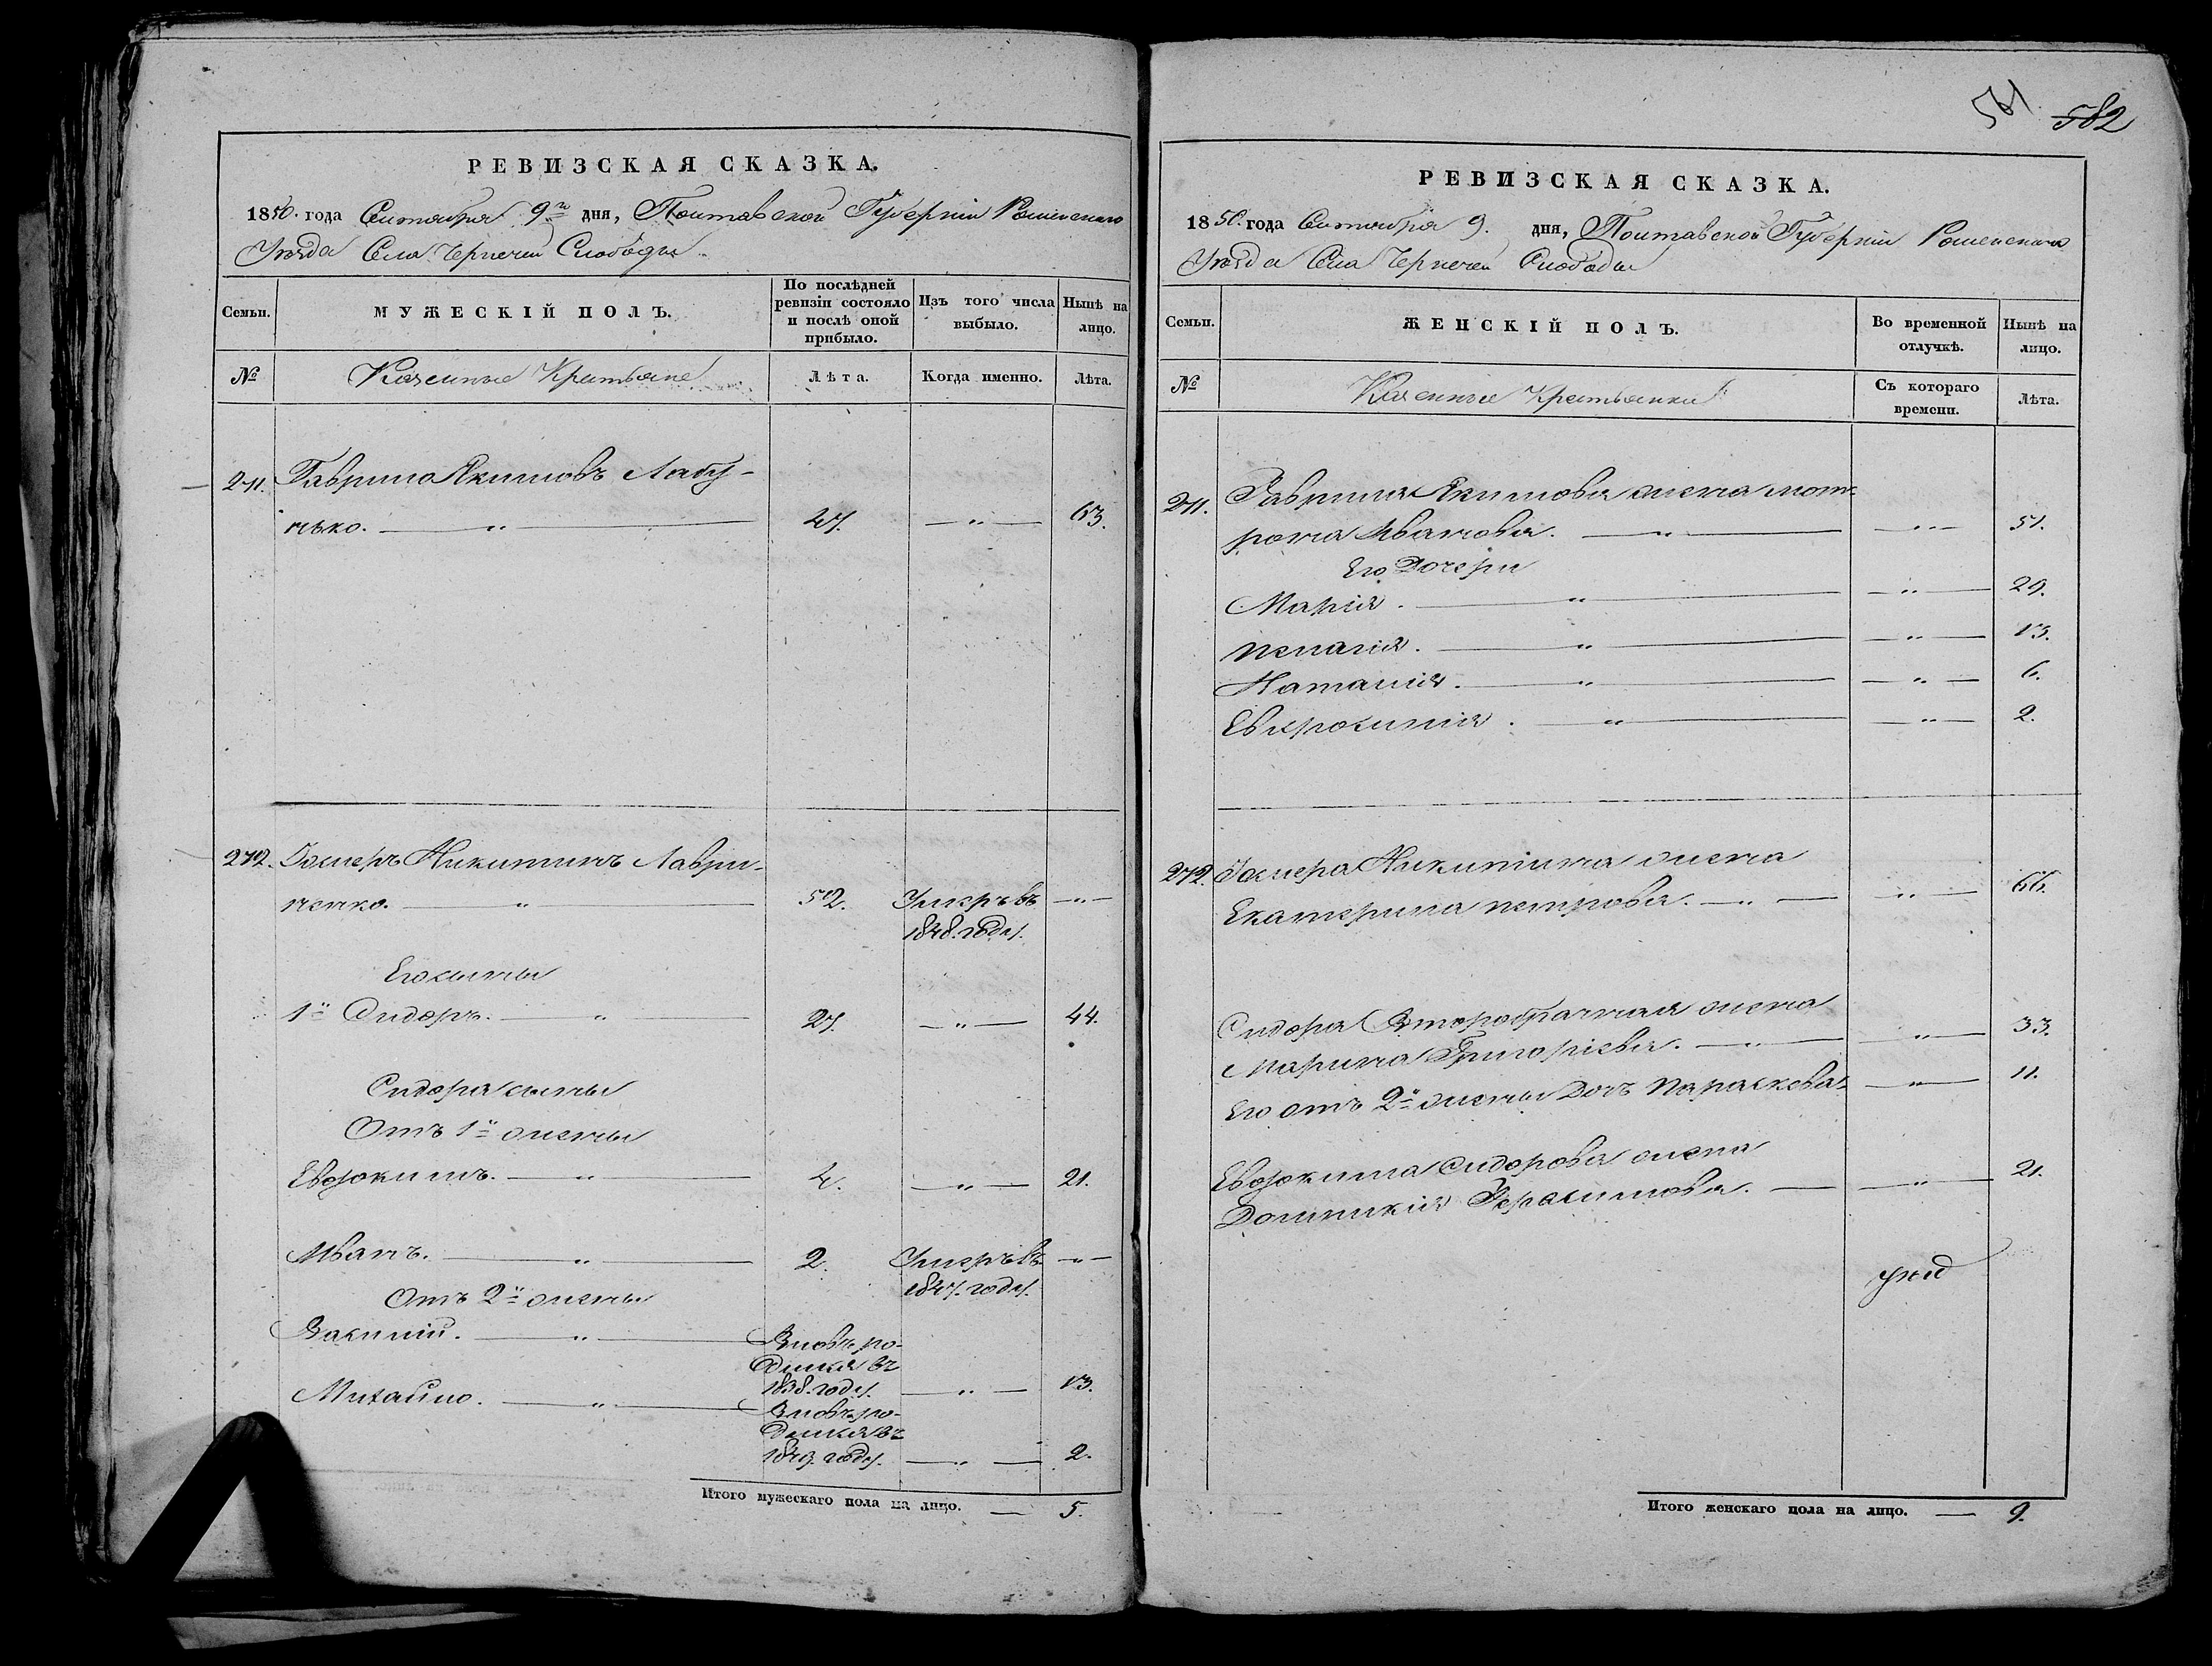 РЕВИЗСКАЯ СКАЗКА.
1850. года Сентября 9го дня, Полтавской Губерніи Роменскаго
Уѣзда Села Чернечей Слободы
Семьи.
МУЖЕСКІЙ ПОЛЪ.
По послѣдней ревизіи состояло и послѣ оной прибыло.
Изъ того числа выбыло.
Нынѣ на лицо.
№
Казенные Крестьяне
Лѣта.
Когда именно.
Лѣта.
271. Гаврило Якимовъ Лабу-
нько. — " — 47. — " — 63.
272. Никитинъ Лаври-
ненко. — " — 52. Умеръ въ — " —
1848. году.
Его сыны
1й Сидоръ. — " — 27. — " — 44.
Сидора сыны
Отъ 1й жены
Евдокимъ. — " — 4. — " — 21.
Иванъ. — " — 2. Умеръ въ — " —
1847. году.
Отъ 2й жены
Василій. — " — Вновь ро-
дился въ
1838. году. — " — 13.
Михайло. — " — Вновь ро-
дился въ
1849. году. — " — 2.
Итого мужескаго пола на лицо. — 5.
561 582
РЕВИЗСКАЯ СКАЗКА.
1850. года Сентября 9. дня, Полтавской Губерніи Роменскаго
Уѣзда Села Чернечей Слободы
Семьи.
ЖЕНСКІЙ ПОЛЪ.
Во временной отлучкѣ.
Нынѣ на лицо.
№
Казенные Крестьянки
Съ котораго времени.
Лѣта.
271. Гаврила Якимова жена мот-
рона Иванова. — " — — " — 51.
Его Дочери
Марія. — " — — " — 29.
пелагія. — " — — " — 13.
Наталія. — " — — " — 6.
Евфросинія. — " — — " — 2.
272. Никитина жена
Екатерина петрова. — " — — " — 66.
Сидора Второбрачная жена
Марина Григоріева. — " — — " — 33.
Его отъ 2й жены Дочь Параскева — " — 11.
Евдокима Сидорова жена
Домникія Герасимова. — — " — 21.
Итого женскаго пола на лицо. — 9.